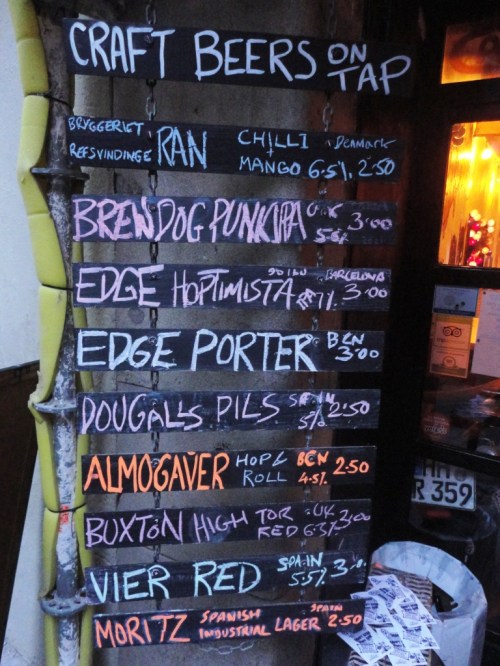 CRAFT BEERS ON TAP
BRYGGERIET REFSVINDINGE RAN CHILLI + MANGO Denmark 6.5% 2.50
BREWDOG PUNK IPA U.K 3.00
EDGE HOPTIMISTA BARCELONA 7% 3.00
EDGE PORTER BCN 3.00
DOUGALLS PILS SPAIN 5% 2.50
ALMOGAVER HOP & ROLL BCN 4.5% 2.50
BUXTON HIGH TOR RED UK 6.3% 3.00
VIER RED SPAIN 5.5% 3.00
MORITZ SPANISH INDUSTRIAL LAGER SPAIN 2.50
R 359